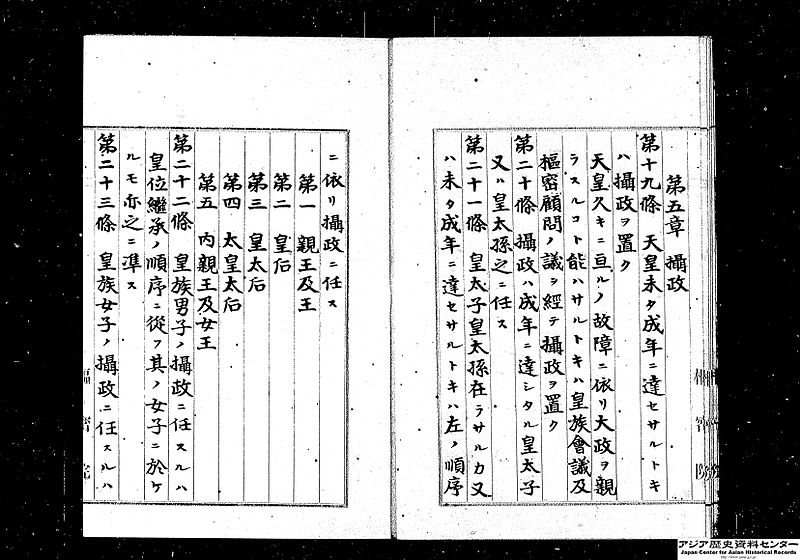 第五章 攝政
第十九條 天皇未タ成年ニ達セサルトキ
ハ攝政ヲ置ク
天皇久キニ亘ルノ故障ニ依リ大政ヲ親
ラスルコト能ハサルトキハ皇族會議及
樞密顧問ノ議ヲ經テ攝政ヲ置ク
第二十條 攝政ハ成年ニ達シタル皇太子
又ハ皇太孫之ニ任ス
第二十一條 皇太子皇太孫在ラサルカ又
ハ未タ成年ニ達セサルトキハ左ノ順序
ニ依リ攝政ニ任ス
第一 親王及王
第二 皇后
第三 皇太后
第四 太皇太后
第五 內親王及女王
第二十二條 皇族男子ノ攝政ニ任スルハ
皇位繼承ノ順序ニ從フ其ノ女子ニ於ケ
ルモ亦之ニ準ス
第二十三條 皇族女子ノ攝政ニ任スルハ
アジア歴史資料センター
Japan Center for Asian Historical Records